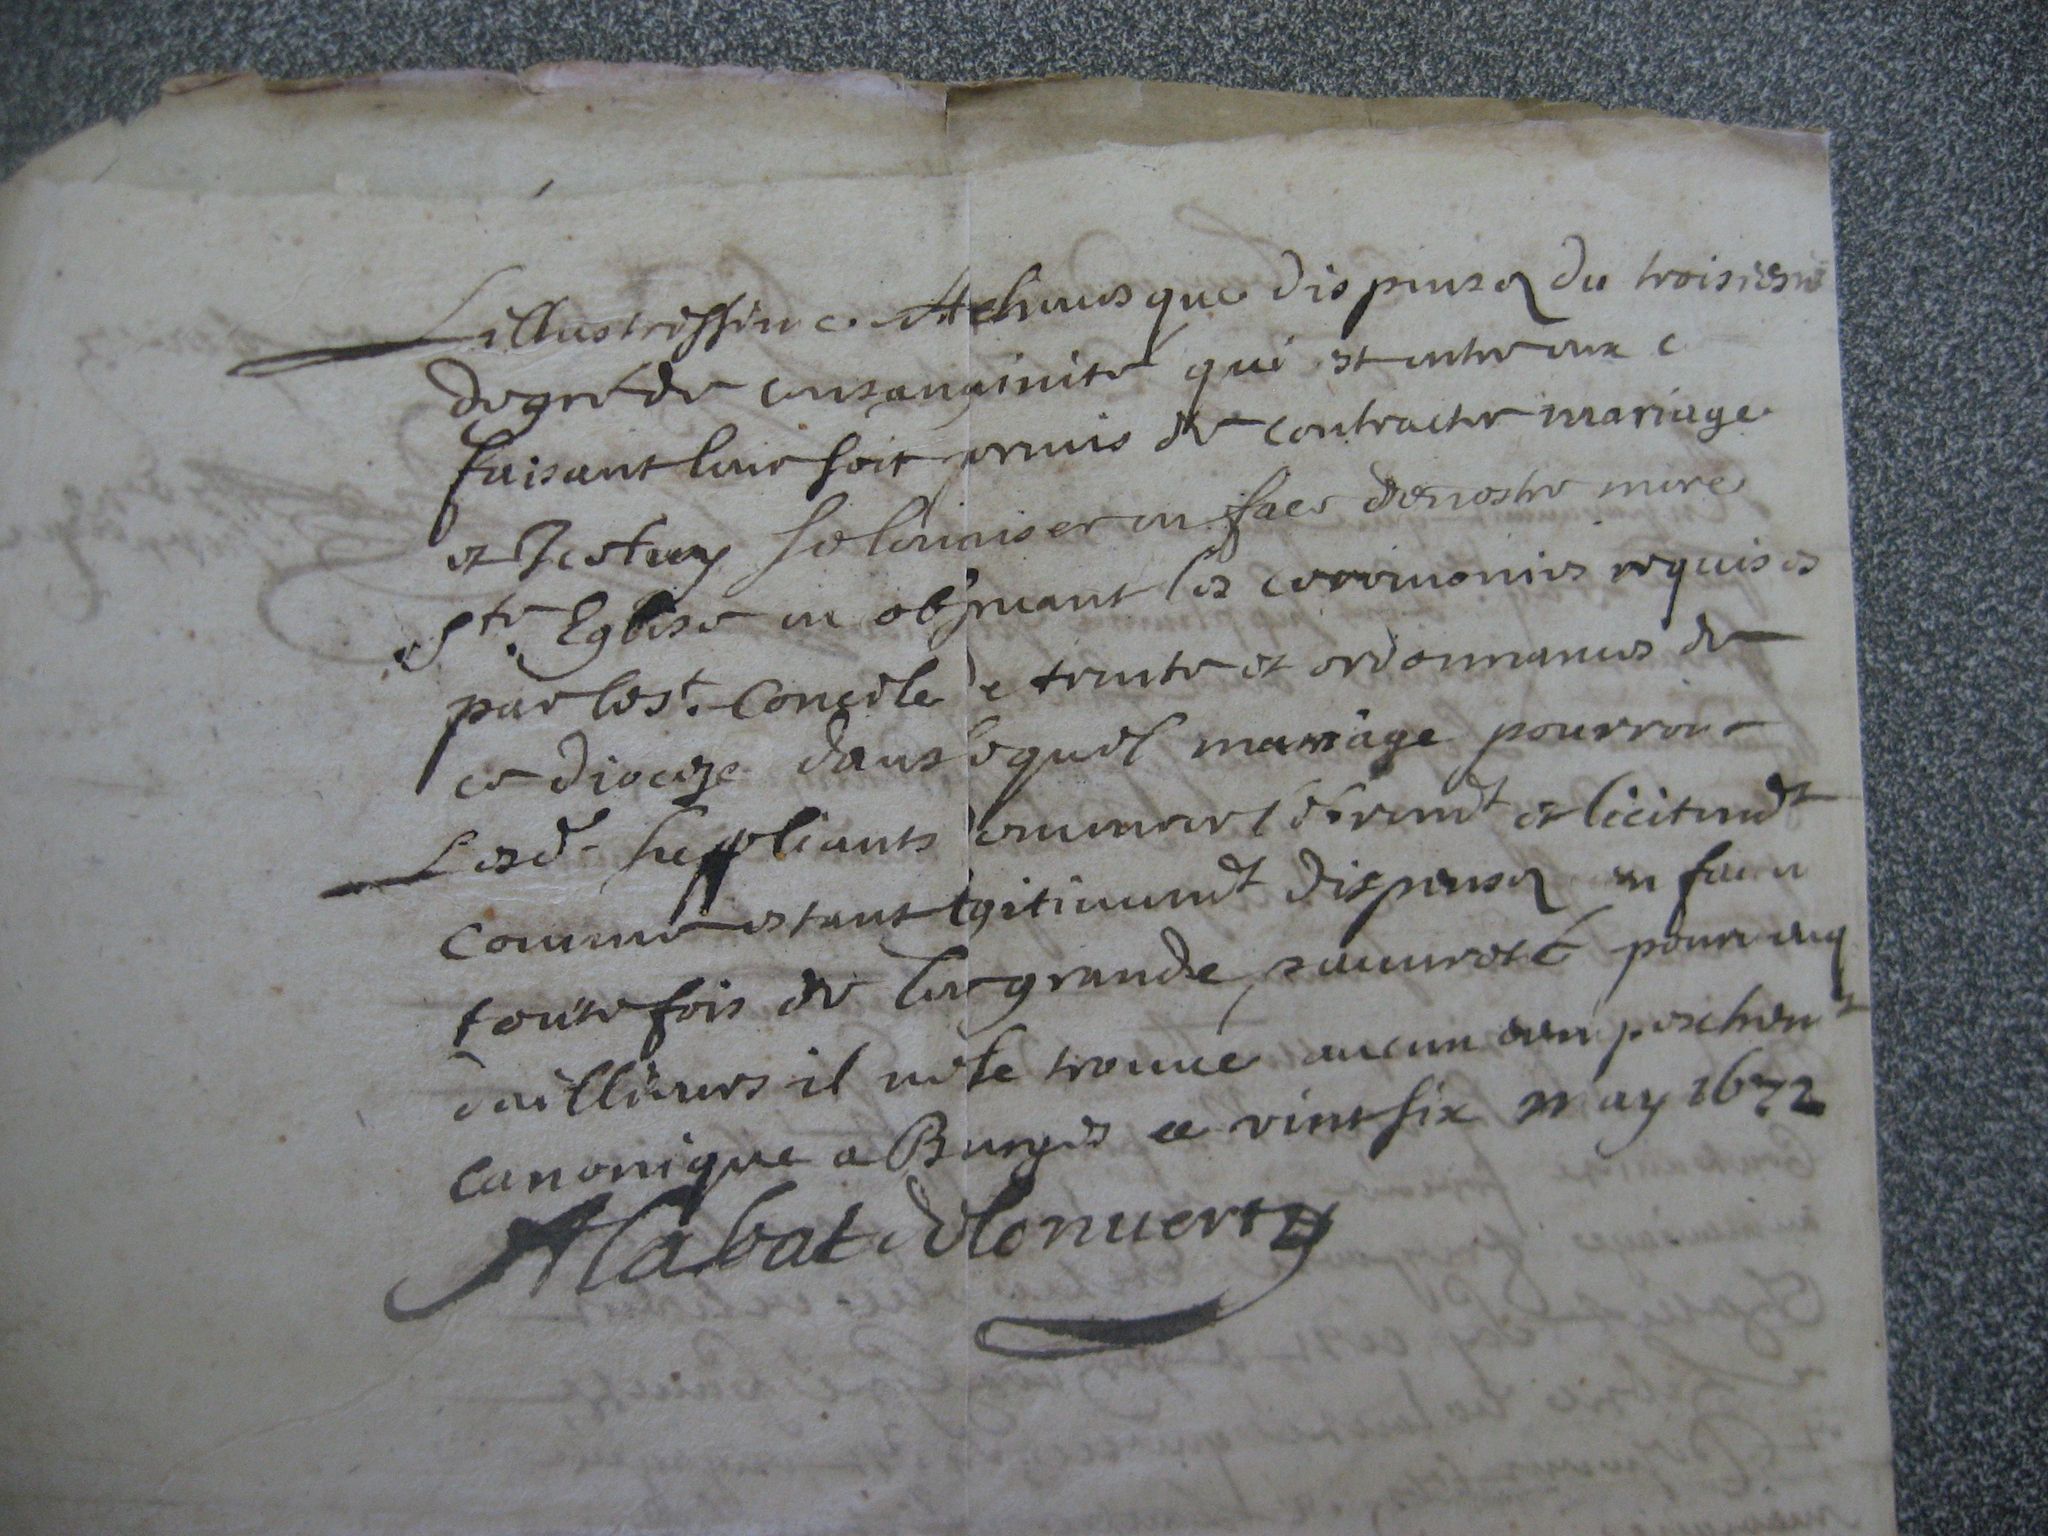 Lillustrissime Archeuesque dispenser du troisiesme
degré de consanguinité qui est entre eux c
faisant leur soit permis de contracter mariage
et Jceluy solemniser en face de nostre mere
Ste. Eglise en obseruant les ceremonies requises
par le st. Concile de trente et ordonnances de
ce dioceze dans lequel mariage pourront
Lesd. suppliants demeurer librement et licitemt
comme estant legitimemt dispensez en faueur
toutefois de leur grande pauureté pourueuq
dailleurs il ne se trouue aucun empeschemt
canonique a Burges ce vint six may 1672
Labat